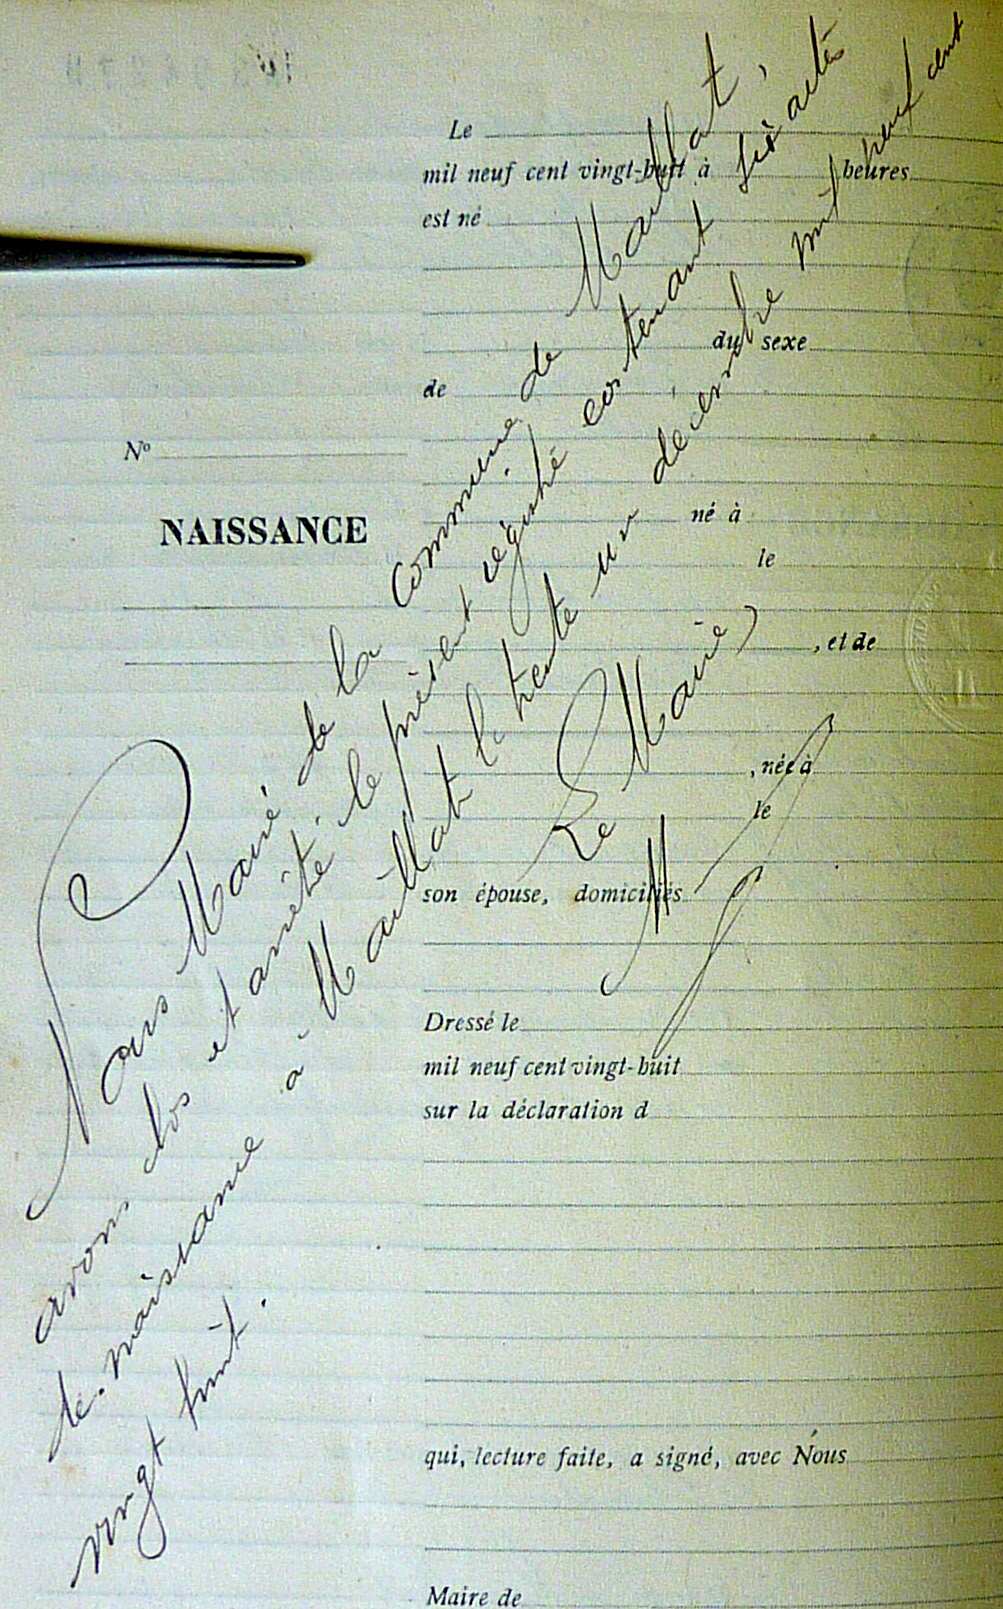 Le
mil neuf cent vingt-huit à heures
est né
du sexe
de
No
NAISSANCE
né à
le
, et de
, née à
le
son épouse, domiciliés
Dressé le
mil neuf cent vingt-huit
sur la déclaration d
qui, lecture faite, a signé, avec Nous
Maire de
Nous Maire de la commune de Maillat,
avons clos et arrêté le présent registre contenant six actes
de naissance à Maillat le trente un décembre mil neuf cent
vingt huit.
Le Maire,